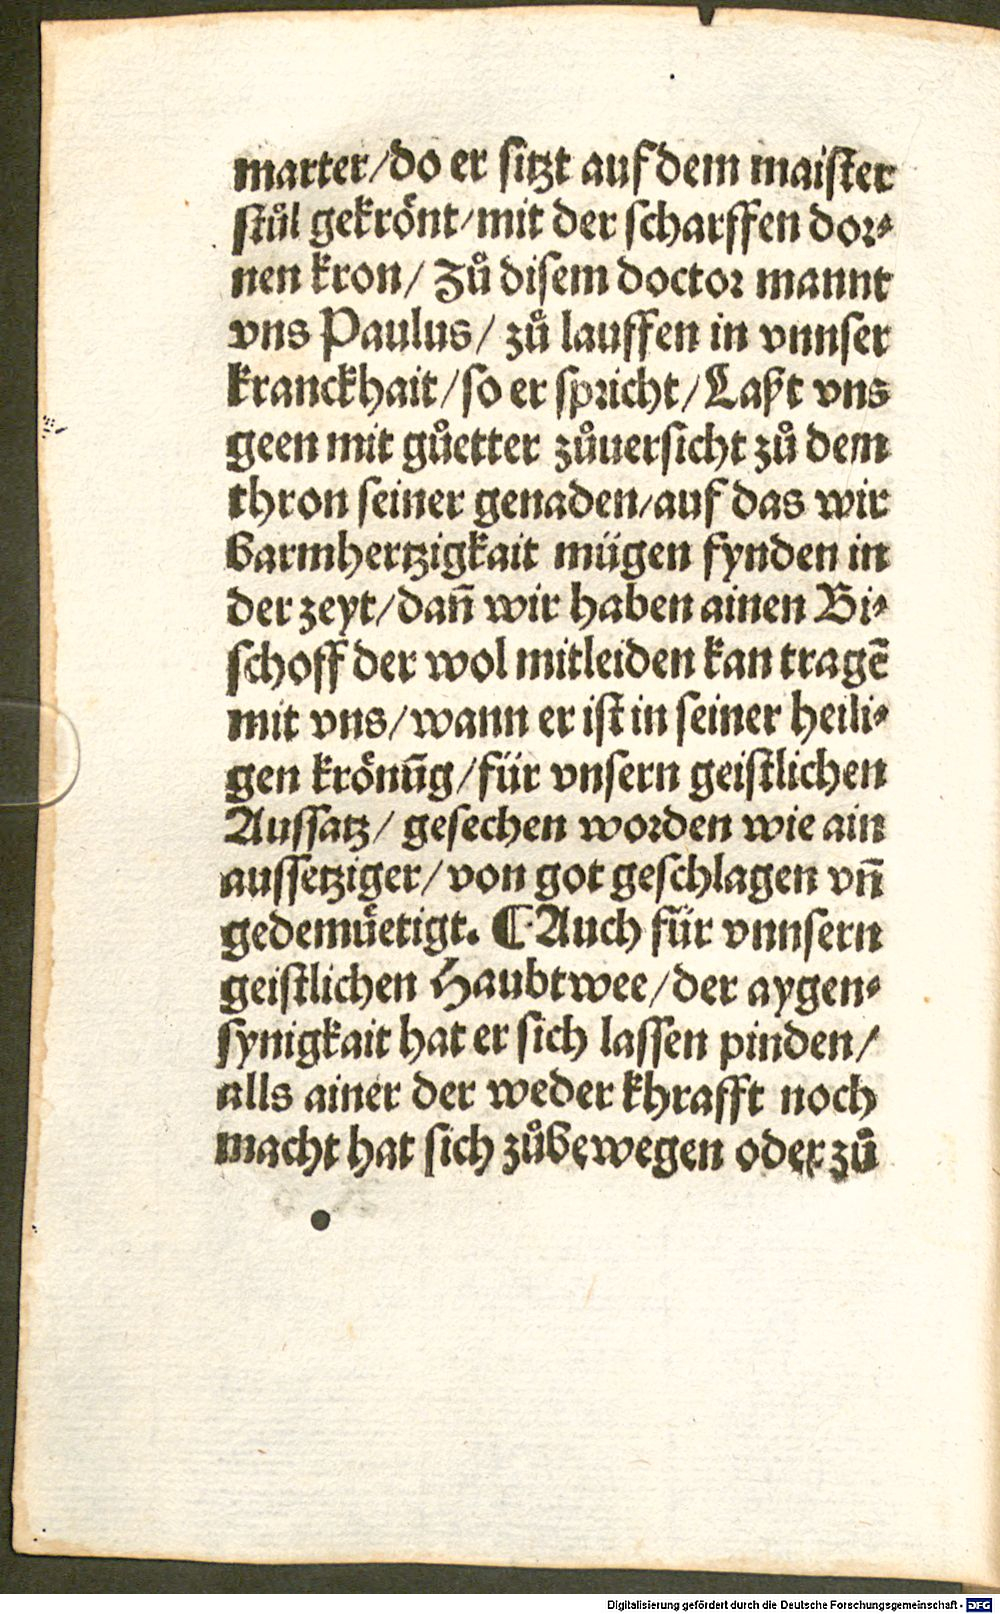 marter/do er sitzt auf dem maister
stůl gekrönt/mit der scharffen dor-
nen kron/ Zů disem doctor mannt
vns Paulus/ zů lauffen in vnnser
kranckhait/so er spricht/Laßt vns
geen mit gůetter zůuersicht zů dem
thron seiner genaden/auf das wir
barmhertzigkait mügen fynden in
der zeyt/dañ wir haben ainen Bi-
schoff der wol mitleiden kan tragẽ
mit vns/wann er ist in seiner heili-
gen krönũg/für vnsern geistlichen
Aussatz/ gesechen worden wie ain
aussetziger/von got geschlagen vñ
gedemüetigt. ¶ Auch für vnnsern
geistlichen Haubtwee/der aygen-
synigkait hat er sich lassen pinden/
alls ainer der weder khrafft noch
macht hat sich zůbewegen oder zů
Digitalisierung gefördert durch die Deutsche Forschungsgemeinschaft - DFG